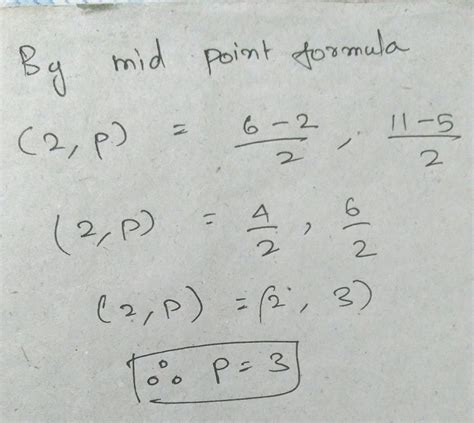 By mid point formula
(2, p) = 6-2/2 , 11-5/2
(2, p) = 4/2 , 6/2
(2, p) = (2, 3)
∴ p = 3